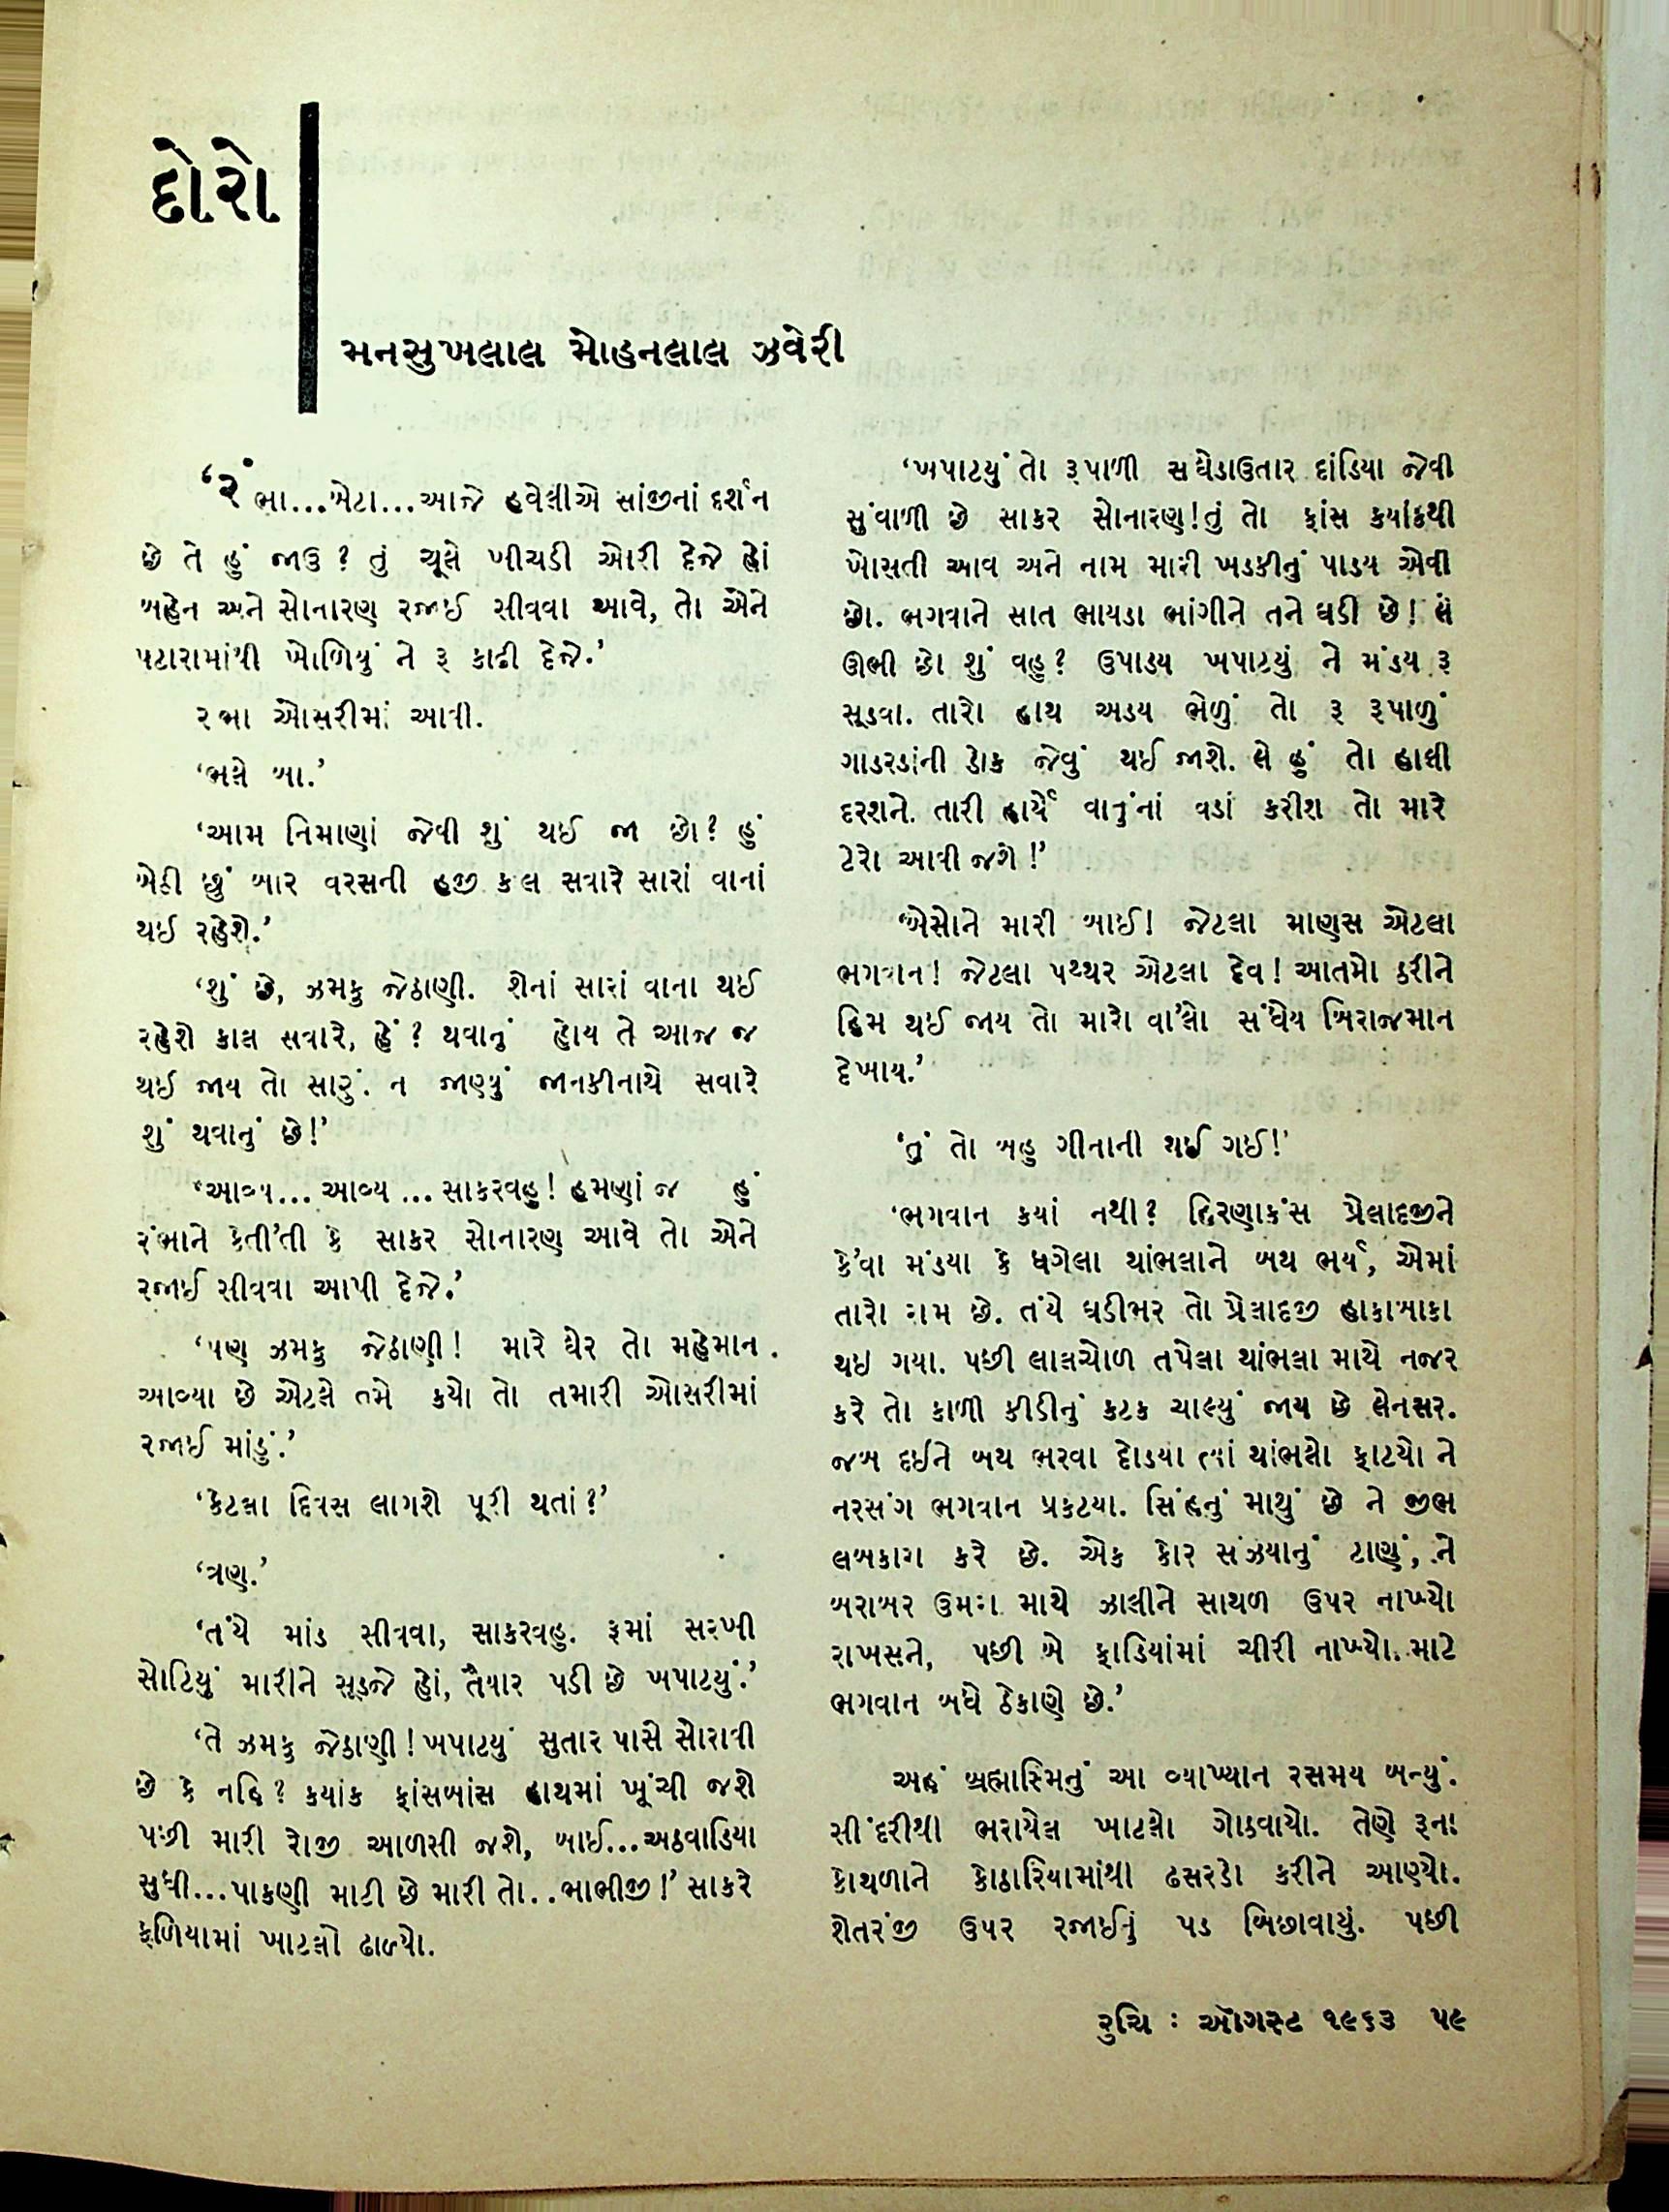 દોરો
મનસુખલાલ મોહનલાલ ઝવેરી
‘રંભા...બેટા...આજે હવેલીએ સાંજીનાં દર્શન
છે તે હું જાઉ? તું ચૂલે ખીચડી ઓરી દેજે હોં
બહેન અને સોનારણ રજાઈ સીવવા આવે, તો એને
પટારામાંથી ખોળિયું ને રૂ કાઢી દેજે.’
રભા ઓસરીમાં આવી.
‘ભલે બા.’
‘આમ નિમાણાં જેવી શું થઈ જા છો? હું
બેઠી છું બાર વરસની હજી કલ સવારે સારાં વાનાં
થઈ રહેશે.’
‘શું છે, ઝમકુ જેઠાણી. શેનાં સારાં વાના થઈ
રહેશે કાલ સવારે, હેં? થવાનું હોય તે આજ જ
થઈ જાય તો સારું. ન જાણ્યું જાનકીનાથે સવારે
શું થવાનું છે!’
‘આવ્ય... આવ્ય ... સાકરવહુ! હમણાં જ હું
રંભાને કેતી’તી કે સાકર સોનારણ આવે તો એને
રજાઈ સીવવા આપી દેજે.’
‘પણ ઝમકુ જેઠાણી! મારે ઘેર તો મહેમાન
આવ્યા છે એટલે તમે કયો તો તમારી ઓસરીમાં
રજાઈ માંડું.’
‘કેટલા દિવસ લાગશે પૂરી થતાં?’
‘ત્રણ.’
‘તંયે માંડ સીવવા, સાકરવહુ. રૂમાં સરખી
સોટિયું મારીને સૂડજે હોં, તૈયાર પડી છે ખપાટયું.’
‘તે ઝમકુ જેઠાણી! ખપાટયું સુતાર પાસે સોરાવી
છે કે નહિ? કયાંક ફાંસબાંસ હાથમાં ખૂંચી જશે
પછી મારી રોજી આળસી જશે, બાઈ...અઠવાડિયા
સુધી...પાકણી માટી છે મારી તો..ભાભીજી!’ સાકરે
ફળિયામાં ખાટલો ઢાળ્યો.
‘ખપાટયું તો રૂપાળી સઘેડાઉતાર દાંડિયા જેવી
સુંવાળી છે સાકર સોનારણ! તું તો ફાંસ કયાંકથી
ખોસતી આવ અને નામ મારી ખડકીનું પાડય એવી
છો. ભગવાને સાત ભાયડા ભાંગીને તને ઘડી છે! લે
ઊભી છો શું વહુ? ઉપાડય ખપાટયું ને મંડય રૂ
સૂડવા. તારો હાથ અડય ભેળું તો રૂ રૂપાળું
ગાડરડાંની ડોક જેવું થઈ જાશે. લે હું તો હાલી
દરશને. તારી હાર્યે વાતુંનાં વડાં કરીશ તો મારે
ટેરો આવી જશે!’
‘બેસોને મારી બાઈ! જેટલા માણસ એટલા
ભગવાન! જેટલા પથ્થર એટલા દેવ! આતમો ઠરીને
હિમ થઈ જાય તો મારો વા’લો સંધેય બિરાજમાન
દેખાય.’
‘તું તો બહુ ગીનાની થઈ ગઈ!’
‘ભગવાન કયાં નથી? હિરણાકંસ પ્રેલાદજીને
કે’વા મંડયા કે ધગેલા થાંભલાને બથ ભર્ય, એમાં
તારો રામ છે. તંયે ઘડીભર તો પ્રેલાદજી હાકાબાકા
થઇ ગયા. પછી લાલચોળ તપેલા થાંભલા માથે નજર
કરે તો કાળી કીડીનું કટક ચાલ્યું જાય છે લેનસર.
જબ દઈને બથ ભરવા દોડયા ત્યાં થાંભલો ફાટયો ને
નરસંગ ભગવાન પ્રકટયા. સિંહનું માથું છે ને જીભ
લબકારા કરે છે. એક કોર સંઝયાનું ટાણું, ને
બરાબર ઉમરા માથે ઝાલીને સાથળ ઉપર નાખ્યો
રાખસને, પછી બે ફાડિયાંમાં ચીરી નાખ્યો. માટે
ભગવાન બધે ઠેકાણે છે.’
અહં બ્રહ્માસ્મિનું આ વ્યાખ્યાન રસમય બન્યું.
સીંદરીથી ભરાયેલ ખાટલો ગોઠવાયો. તેણે રૂના
કોથળાને કોઠારિયામાંથી ઢસરડો કરીને આણ્યો.
શેતરંજી ઉપર રજાઈનું પડ બિછાવાયું. પછી
રુચિ : ઑગસ્ટ ૧૯૬૩ ૫૯